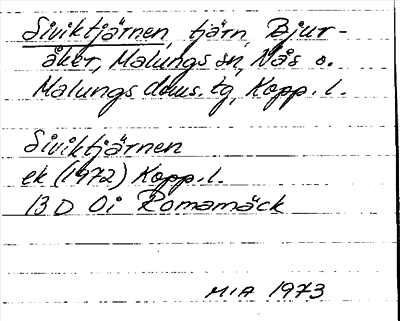 Siviktjärnen, tjärn, Bjur-
åker, Malungs sn, Nås o.
Malungs doms. tg, Kopp. l.
Siviktjärnen
ek (1972) Kopp. l.
13 D 0i Romamäck
MIA 1973